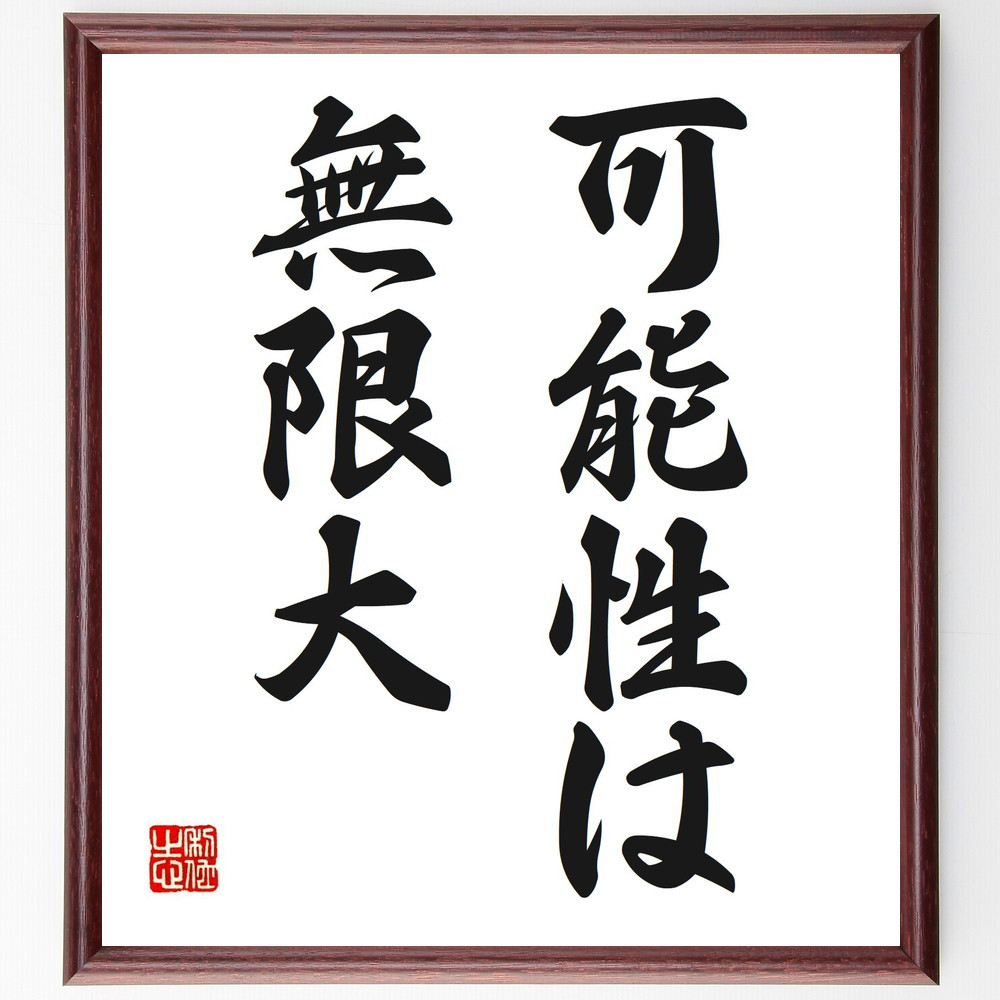 可能性は
無限大